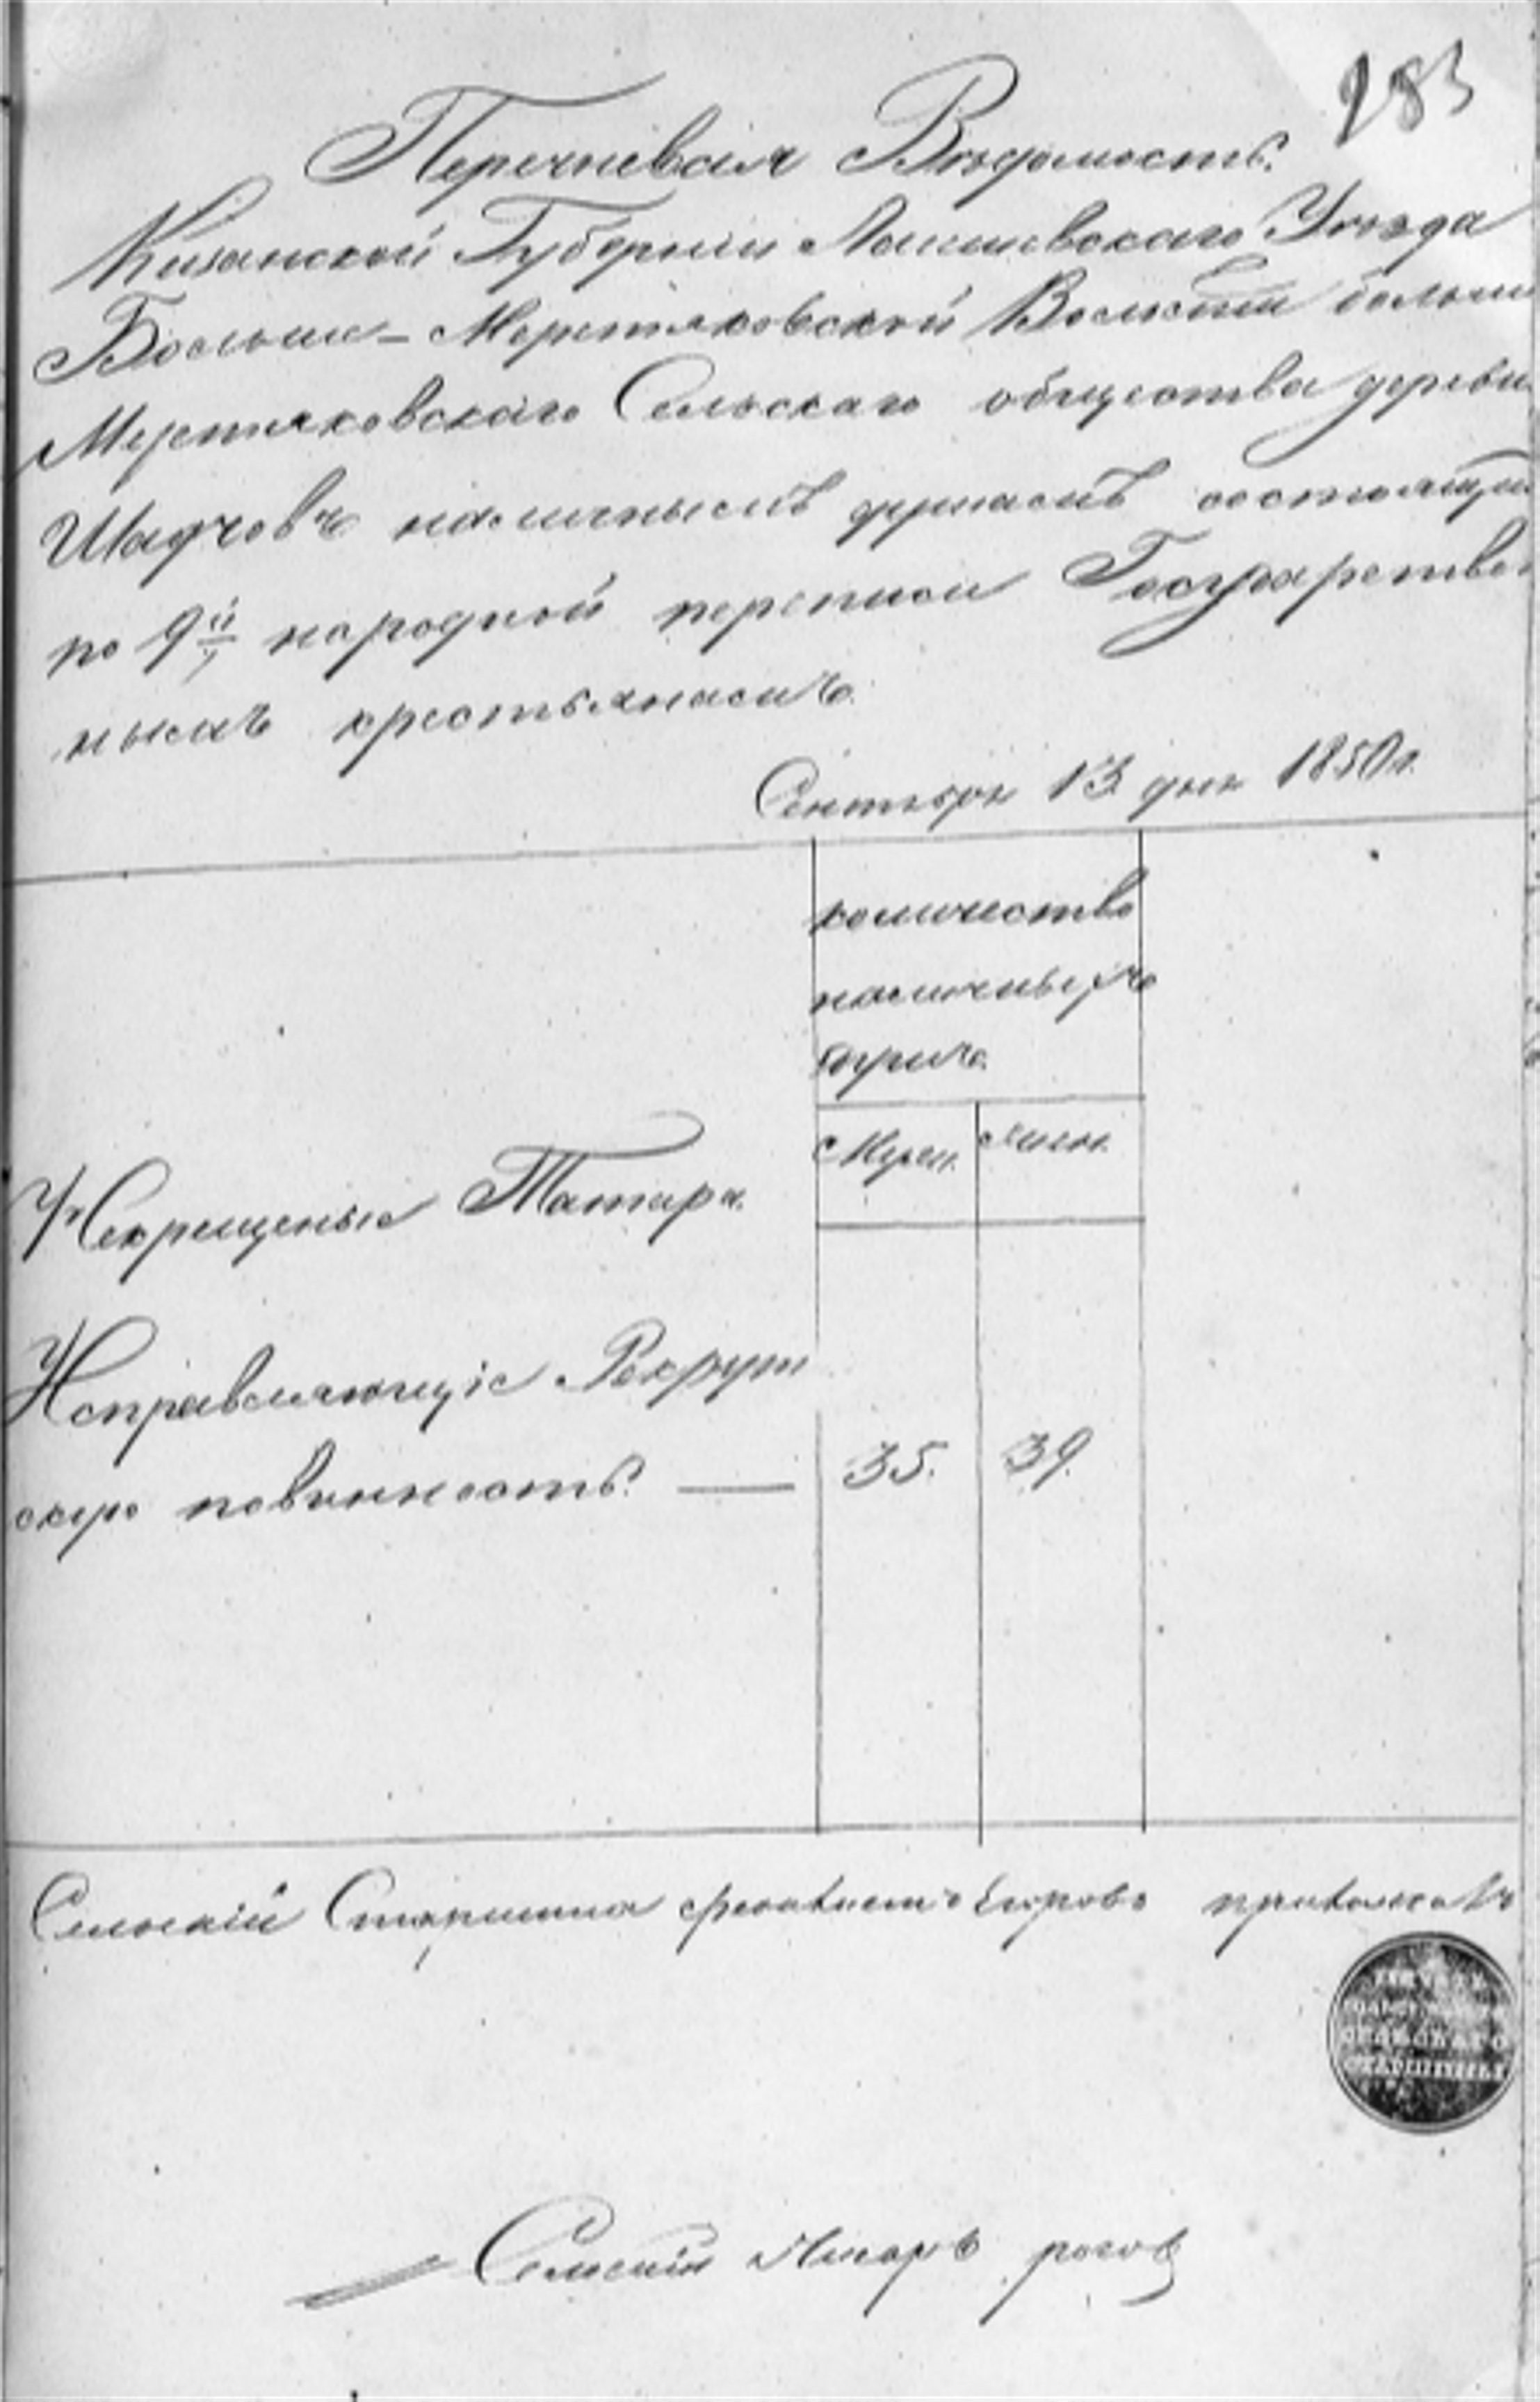 183
Перечневая Ведомость.
Казанской Губернии Лаишевскаго Уезда
Больше-Меретяковской Волости больше
Меретяковскаго Сельскаго общества деревни
наличнымъ душамъ состоящи
по 9й народной переписи Государствен
нымъ крестьянамъ.
Сентября 13 дня 1850 г.
количество
наличныхъ
душъ.
Муж. Жен.
Некрещеные Татара.
Исправляющiе Рекрут
скую повинность. — 35. 39.
Сельскiй Старшина феоктистъ Егоровъ приложилъ
ПЕЧАТЬ
СЕЛЬСКАГО
СТАРШИНЫ
Сельскiй Писарь рогов